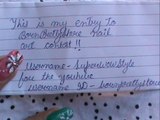 This is my entry to
BornPrettyStore Nail
art contest !!
Username - SuperWowStyle
for the youtube
Username ID -